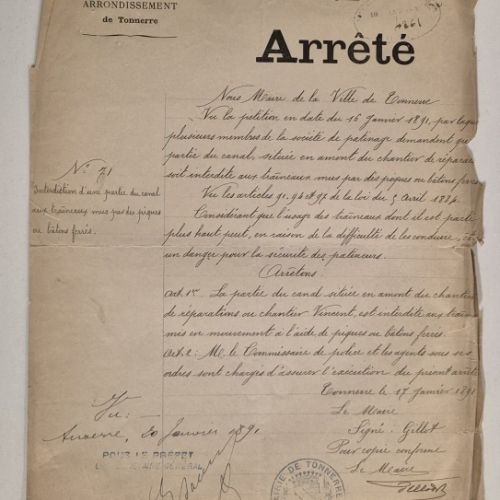 ARRONDISSEMENT
de Tonnerre
Arrêté
Nous Maire de la Ville de Tonnerre
Vu la petition en date du 16 Janvier 1891, par laque
plusieurs membres de la société de patinage demandent que
partie du canal, située en amont du chantier de répara
soit interdite aux traîneaux mus par des piques ou bâtons ferrés
Vu les articles 91. 94 et 97 de la loi du 5 Avril 1884.
Considérant que l'usage des traîneaux dont il est parlé
plus haut peut, en raison de la difficulté de les conduire,
un danger pour la sécurité des patineurs.
Arrêtons
Art. 1er La partie du canal située en amont du chantier
de réparations ou chantier Vincent, est interdite aux traî
mis en mouvement à l'aide de piques ou bâtons ferrés.
Art. 2: Mr. le Commissaire de police et les agents sous ses
ordres sont chargés d'assurer l'exécution du présent arrêté
Tonnerre le 17 janvier 1891
Le Maire
Signé: Gillot
Pour copie conforme
Le Maire
N° 71
Interdiction d'une partie du canal
aux traîneaux mus par des piques
ou bâtons ferrés.
Vu:
Auxerre, 20 Janvier 1891
POUR LE PRÉFET
GÉNÉRAL
MAIRIE DE TONNERRE